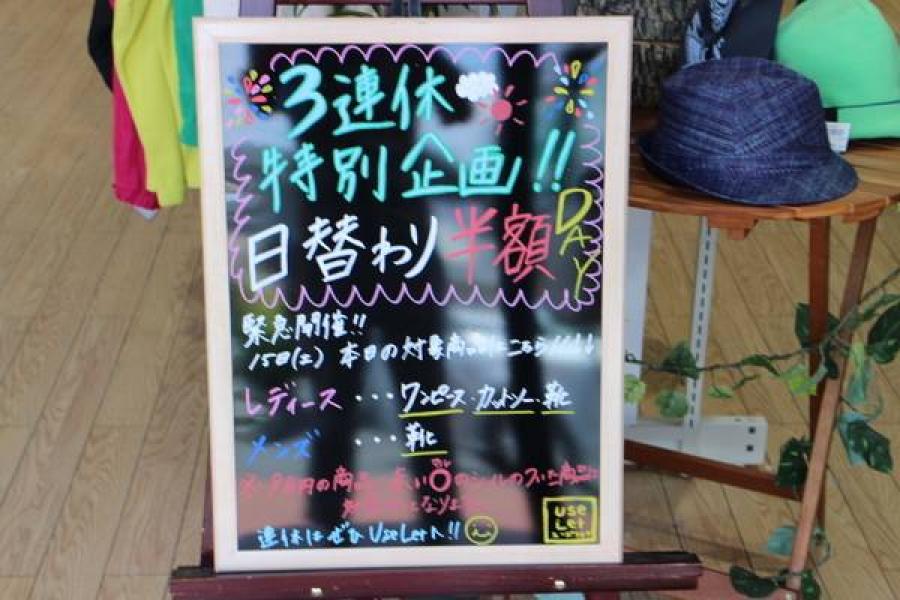 3連休
特別企画!!
日替わり半額DAY
緊急開催!!
15日(土) 本日の対象商品はこちら!!!!
レディース ・・・ワンピース・カットソー・靴
メンズ ・・・靴
の商品、赤い のシールのついた商品は
対象
連休はぜひUseLetへ!!
Use
Let